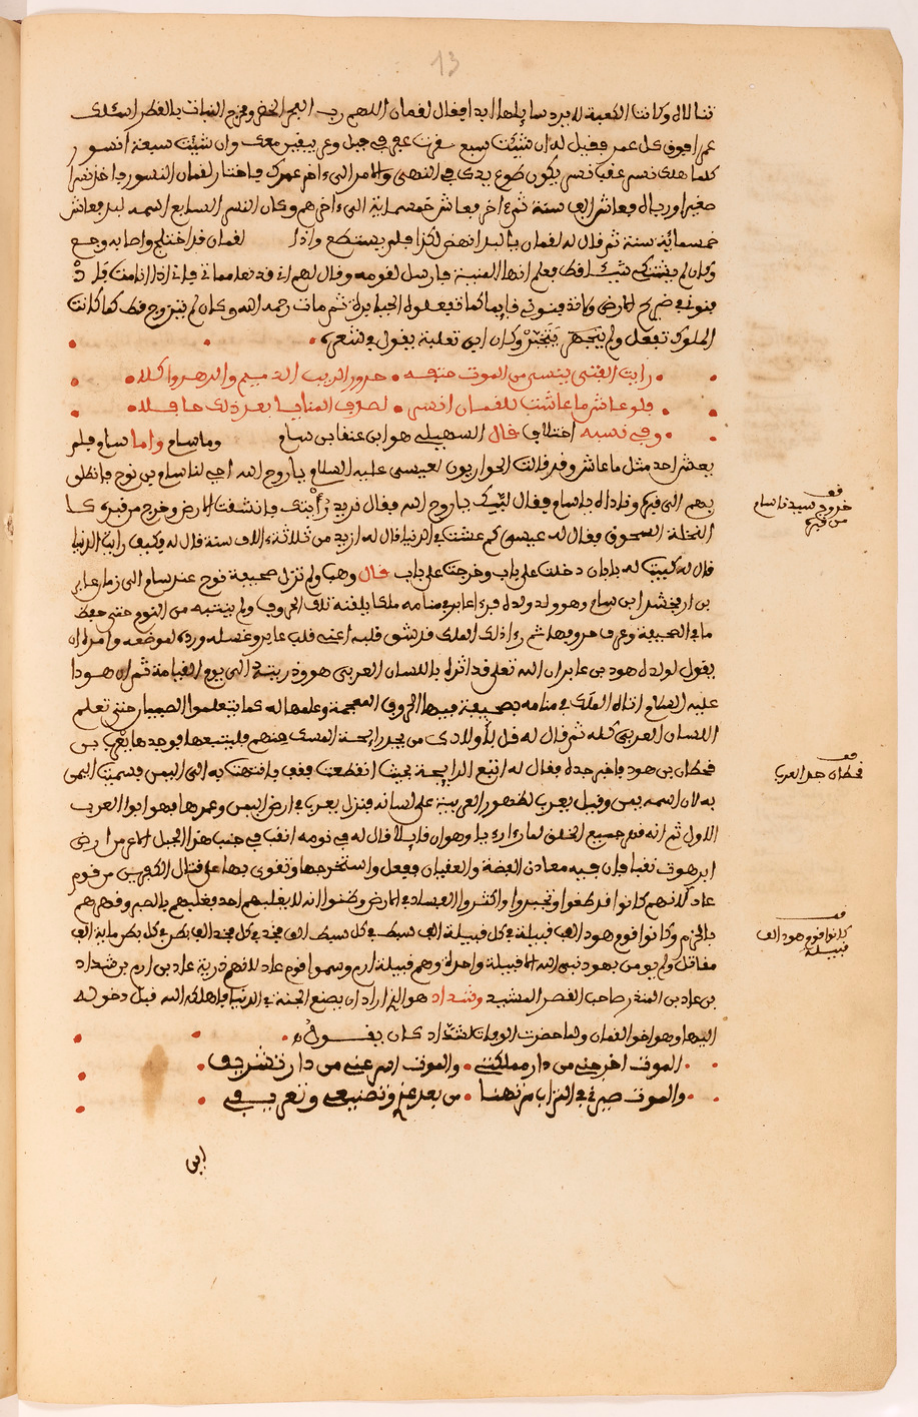 13
تنا لالاه وكانت الكعبة لا يرد سايلها ابدا فقال لقمان اللهم رب البحر الخضر ومخرج النبات بالقطر اسئلك
عمرا فوق كل عمر فقيل له ان شئت سبع في جبل وعر وان شئت سبعة انسور
كلما هلك نسر عقب نسر يكون طوع يدى في النهى والامر الى ءاخر عمرك فاختار لقمان النسور فاخذ نسرا
صغيرا ورباه فعاش الف سنة ثم ءاخر فعاش خمسماية الى ءاخرهم وكان النسر السابع اسمه لبد فعاش
خمسمائة سنة ثم قال له لقمان يا لبد انهض لكذا فلم يستطع واذا لقمان قد اختلج واصابه وجع
وكان لم يشتكى شيئا قط فعلم انها المنية فارسل لقومه وقال لهم اذا انا مت
في ضريح الارض كما تفعلوا الجبابرة ثم مات رحمه الله وكان لم يتزوج قط كما كانت
الملوك تفعل ولم يتجهر يتجبر وكان ابن ثعلبة يقول في شعره
رايت الفتى ينسى من الموت حتفه حذور لريب الدهر والدهر واكله
فلو عاش ما عاشت للقمان انسر لصرف المنايا بعد ذلك ها قله
وفي نسبه اختلاف قال السهيلي هو ابن عنقا بن سام وما سام واما سام فلم
يعش احد مثل ما عاش وقد قالت الحواريون لعيسى عليه السلام يا روح الله احى لنا سام بن نوح فانطلق
بهم الى قبره وناداه يا سام فقال لبيك يا روح الله فقال نريد رؤيتك فانشقت الارض وخرج من قبره كا
النخلة السحوق فقال له عيسى كم عشت في الدنيا قال له ازيد من ثلاثة ءالاف سنة قال له وكيف رايت الدنيا
قال له كبيت له بابان دخلت على باب وخرجت على باب قال وهب ولم تزل صحيفة نوح عند سام الى زمان عابر
بن ارفخشد ابن سام وهو والد ولده فرءا عابر في منامه ملكا يلقنه تلك الحروف ولم ينتبه من النوم حتى حفظ
ما في الصحيفة وعرف حروفها ثم رءا ذلك الملك قد شق قلبه اعنى قلب عابر وغسله ورده لموضعه وامره ان
يقول لولده هود بن عابر ان الله تعلى قد اثره باللسان العربي هو وذريته الى يوم القيامة ثم ان هودا
عليه السلام اتاه الملك في منامه بصحيفة فيها الحروف المعجمة وعلمها له كما يتعلموا الصبيان حتى تعلم
اللسان العربي كله ثم قال له قل لأولادى من يجد رايحة المسك منهم فليتبعها فوجدها يعرب بن
قحطان بن هود فاخبر جده فقال له اتبع الرايحة بحيث انقطعت فقف فانتهت به الى اليمن فسميت اليمن
به لان اسمه يمن وقيل يعرب لظهور العربية على لسانه فنزل يعرب في ارض اليمن وعمرها فهو ابوا العرب
الاول ثم انه قدم جميع الخلق لما رءا رءيا وهو ان قايلا قال له في نومه انقب في جنب هذا الجبل الاعي من ارض
ابرهوت نقبا فان فيه معادن الفضة والعقيان ففعل واستخرجها وتقوى بها على قتال الكفرين من قوم
عاد لانهم كانوا قد طغوا وتجبروا واكثروا الفساد في الارض وظنوا انه لا يغلبهم احد فغلبهم بالصبر وقهرهم
بالحزم وكانوا قوم هود الف قبيلة في كل قبيلة الف سبط في كل سبط الف فخذ في كل فخذ الف بطن في كل بطن ماية الف
مقاتل ولم يومن بهود نبي الله الا قبيلة واحدة وهم قبيلة ارم وسموا قوم عاد لانهم ذرية عاد بن ارم بن شداد
بن عاد بن المنذر صاحب القصر المشيد وشداد هو الذي اراد ان يصنع الجنة في الدنيا فاهلكه الله قبل دخوله
اليها وهو اخو القمان ولما حضرت الوفات لشداد كان يقول
الموت اخرجني من دار مملكتي والموت اضرعني من دار تشريف
والموت صيرني في التراب مرتهنا من بعد عز وتصنيعي وتعريفي
ابن
قف
خروج سيدنا سام
من قبره
قف
قحطان جد العرب
قف
كانوا قوم هود الف
قبيلة